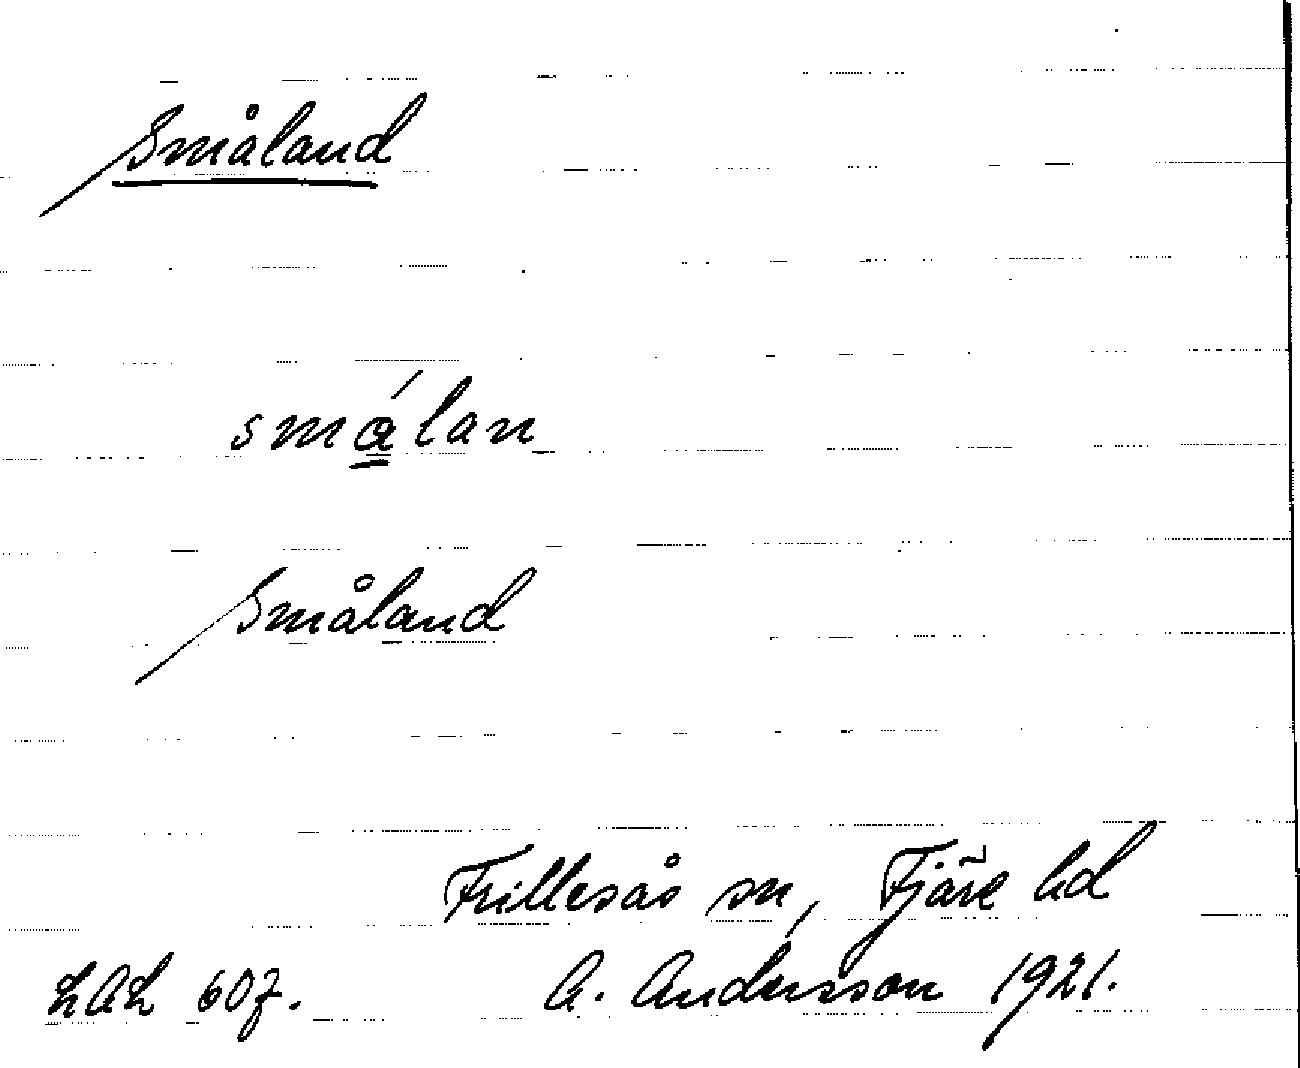 Småland
smá̲lan
Småland
Frillesås sn, Fjäre hd
LAL 607. A. Andersson 1921.